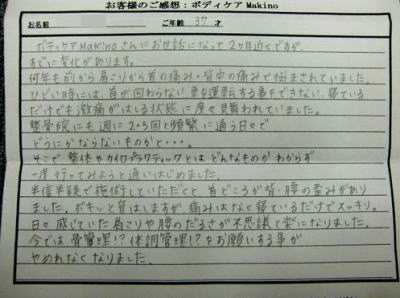 お客様のご感想：ボディケアMakino
お名前 ご年齢 37 才
ボディケアMakinoさんにお世話になって2ヶ月近くですが、
すでに変化があります。
何年も前から肩こりから首の痛み・背中の痛みで悩まされていました。
ひどい時には、首が回わらない 車を運転する事すできない、寝ている
だけでも激痛がはしる状態に度々見舞われていました。
整骨院にも週に2・3回と頻繁に通う日々で
どうにかならないものかと・・・。
そこで整体やカイロプラクティックとはどんなものかわからず
一度行ってみようと通いはじめました。
半信半疑で施術していただくと、首どころが背・腰の歪みがあり
ました。ボキッと音はしますが、痛みはなく寝ているだけでスッキリ。
日々感じていた肩こりや腰のだるさが不思議と楽になりました。
今では骨管理!?体調管理!?をお願いする事が
やめれなくなりました。